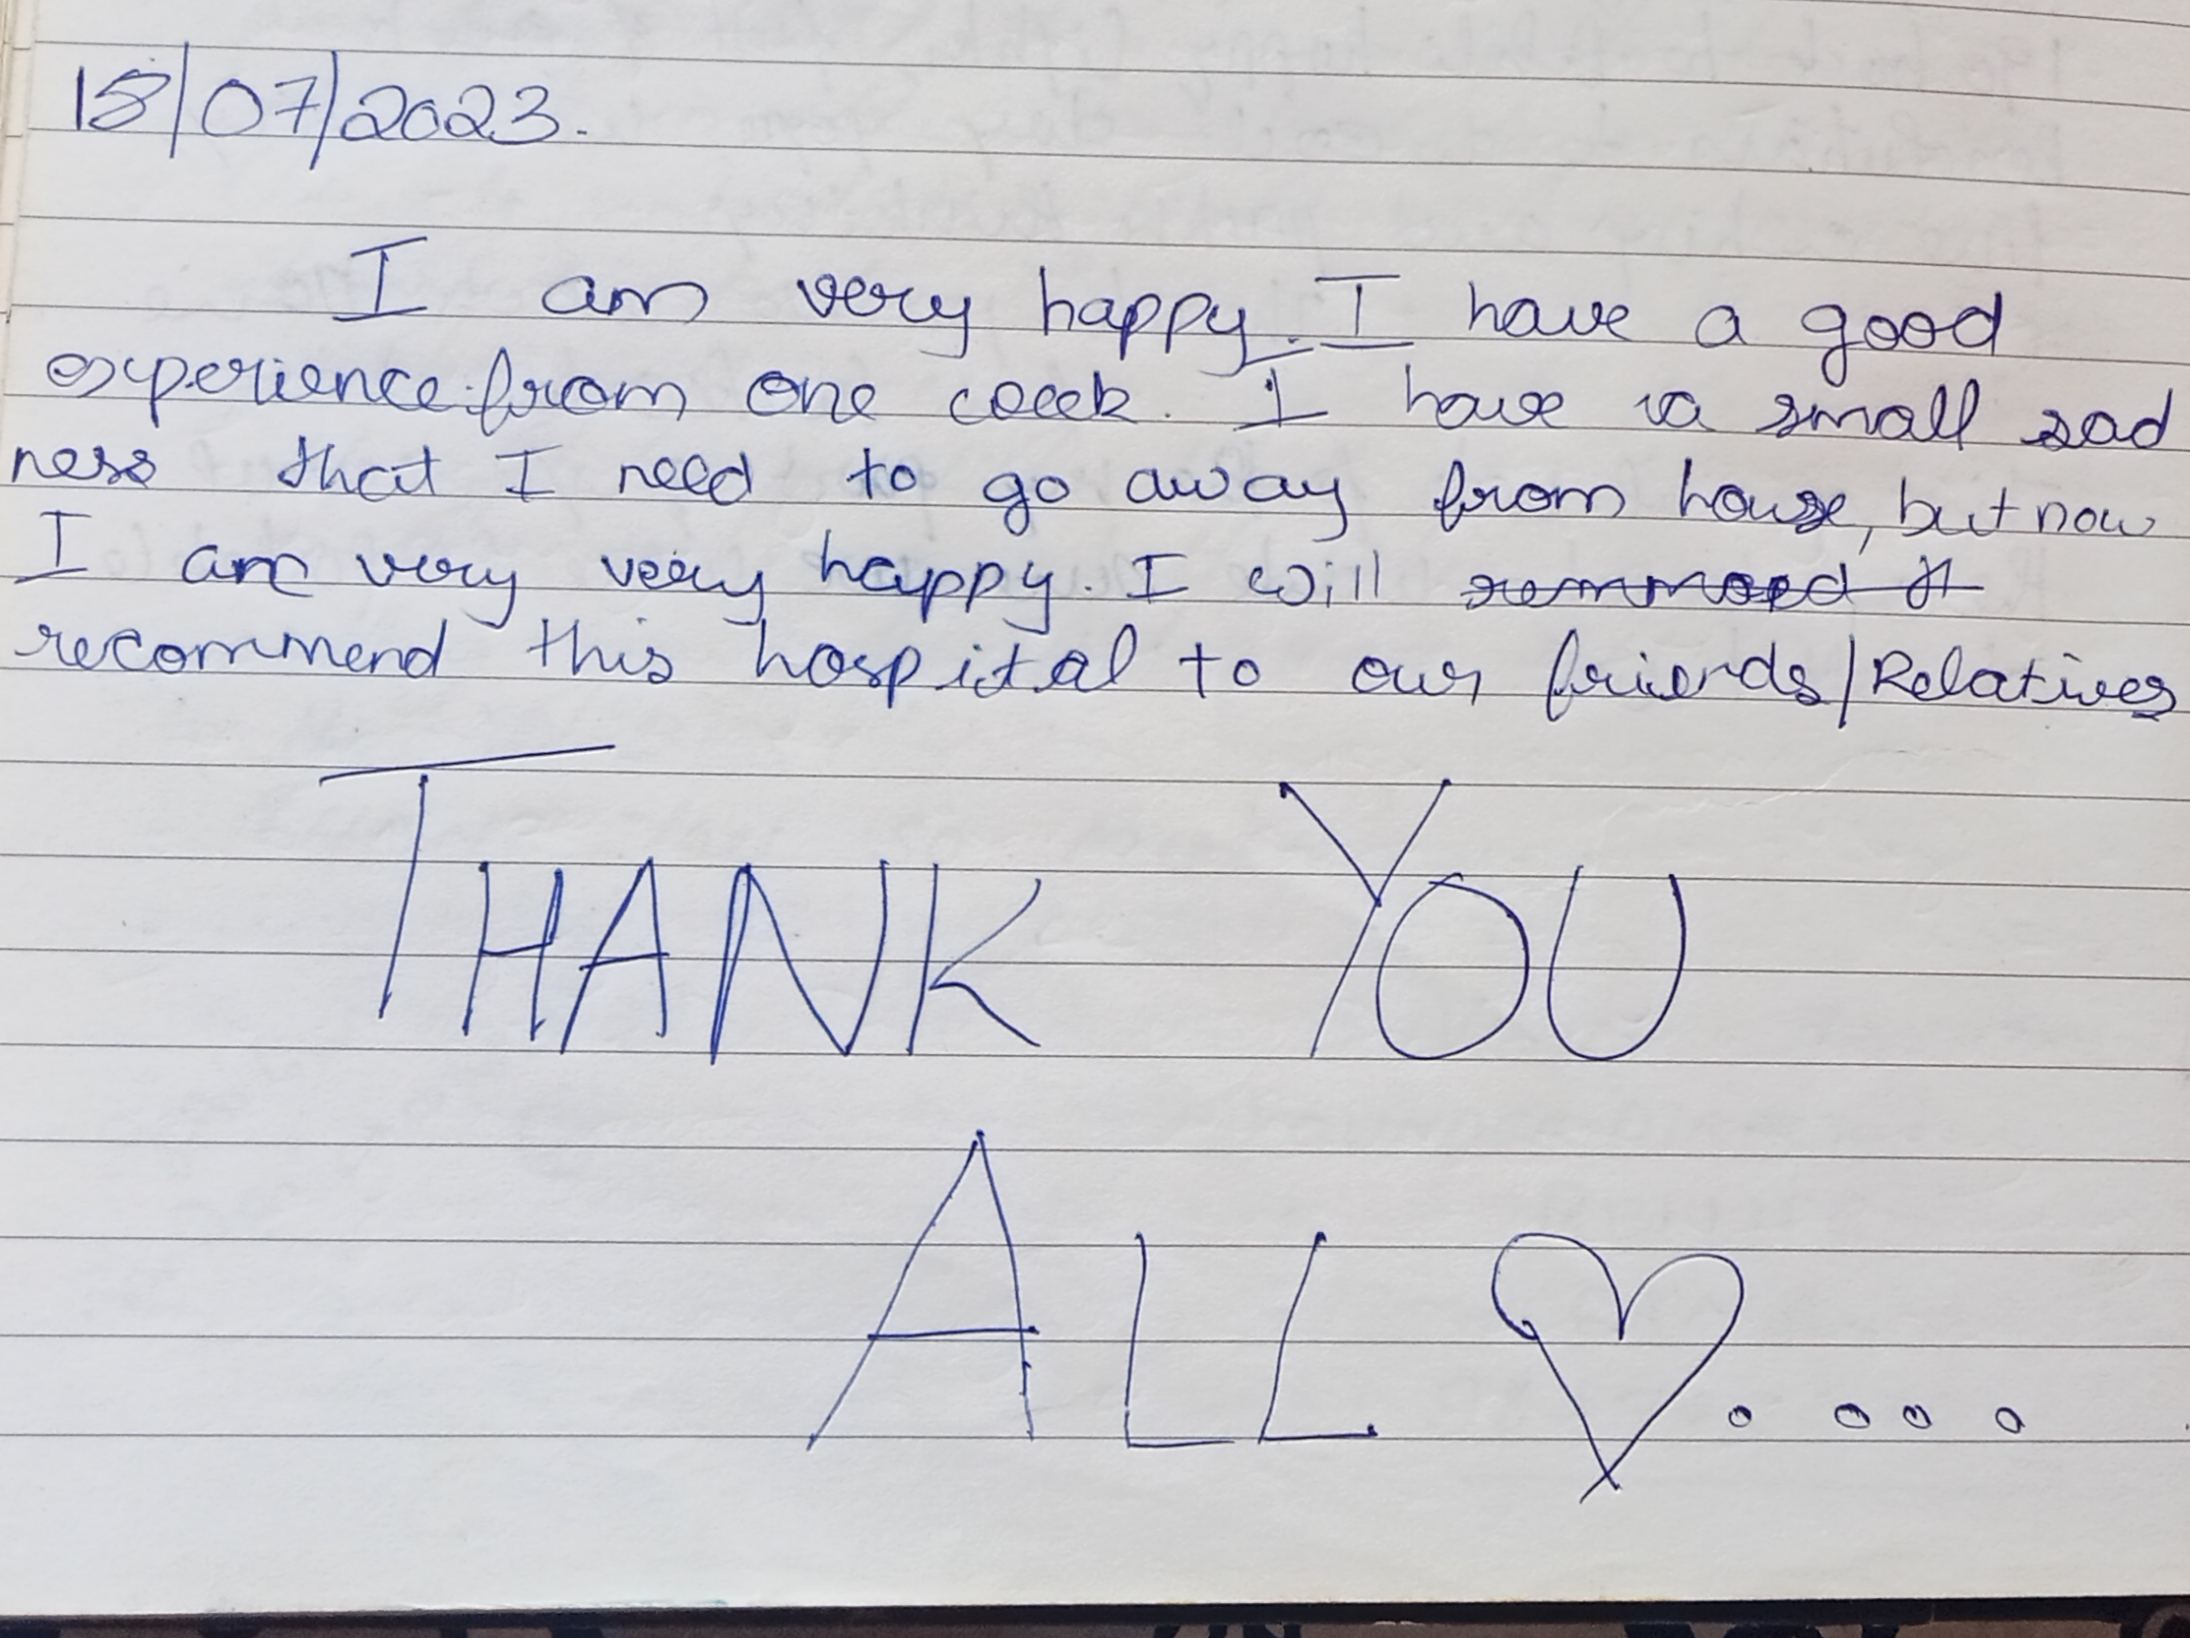 18/07/2023.
I am very happy. I have a good
experience from one week. I have a small sad
ness that I need to go away from house, but now
I am very very happy. I will
recommend this hospital to our friends/Relatives
THANK YOU
ALL ♡....